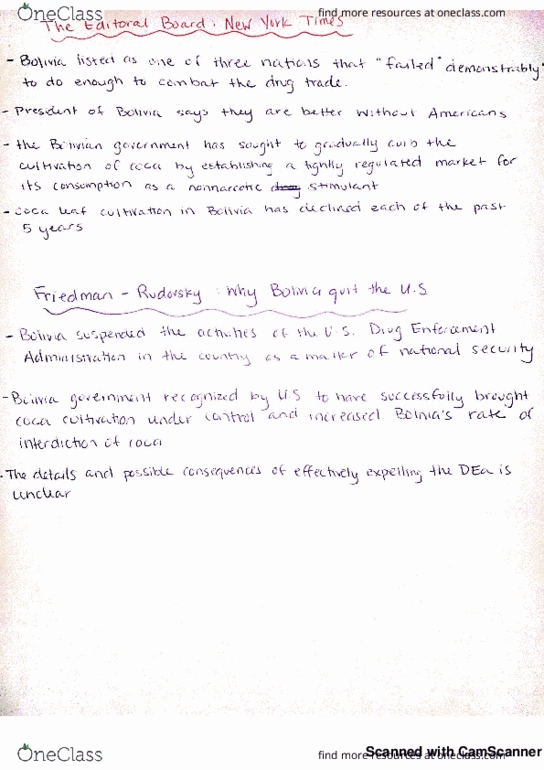 OneClass
find more resources at oneclass.com
The Editoral Board: New York Times
- Bolivia listed as one of three nations that "failed demonstrably"
to do enough to combat the drug trade.
- President of Bolivia says they are better without Americans
- the Bolivian government has sought to gradually curb the
cultivation of coca by establishing a tightly regulated market for
its consumption as a nonnarcotic drug stimulant
- coca leaf cultivation in Bolivia has declined each of the past
5 years
Friedman - Rudovsky: Why Bolivia quit the U.S
- Bolivia suspended the activities of the U.S. Drug Enforcement
Administration in the country as a matter of national security
- Bolivia government recognized by U.S to have successfully brought
coca cultivation under control and increased Bolivia's rate of
interdiction of coca
- The details and possible consequences of effectively expelling the DEA is
unclear
OneClass
find more resources at oneclass.com
Scanned with CamScanner